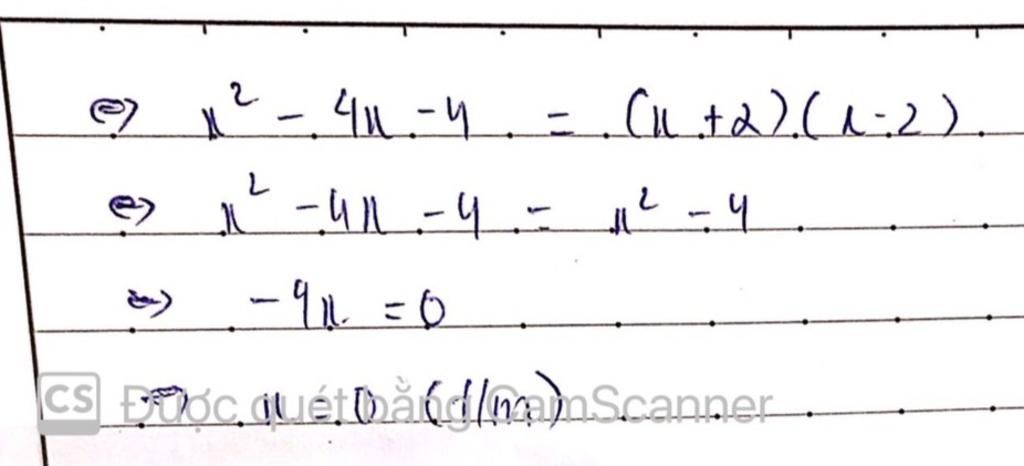 ⇔ x² - 4x - 4 = (x + 2)(x - 2)
⇔ x² - 4x - 4 = x² - 4
⇔ -4x = 0
⇔ x = 0 (t/m)
CS Được quét bằng CamScanner